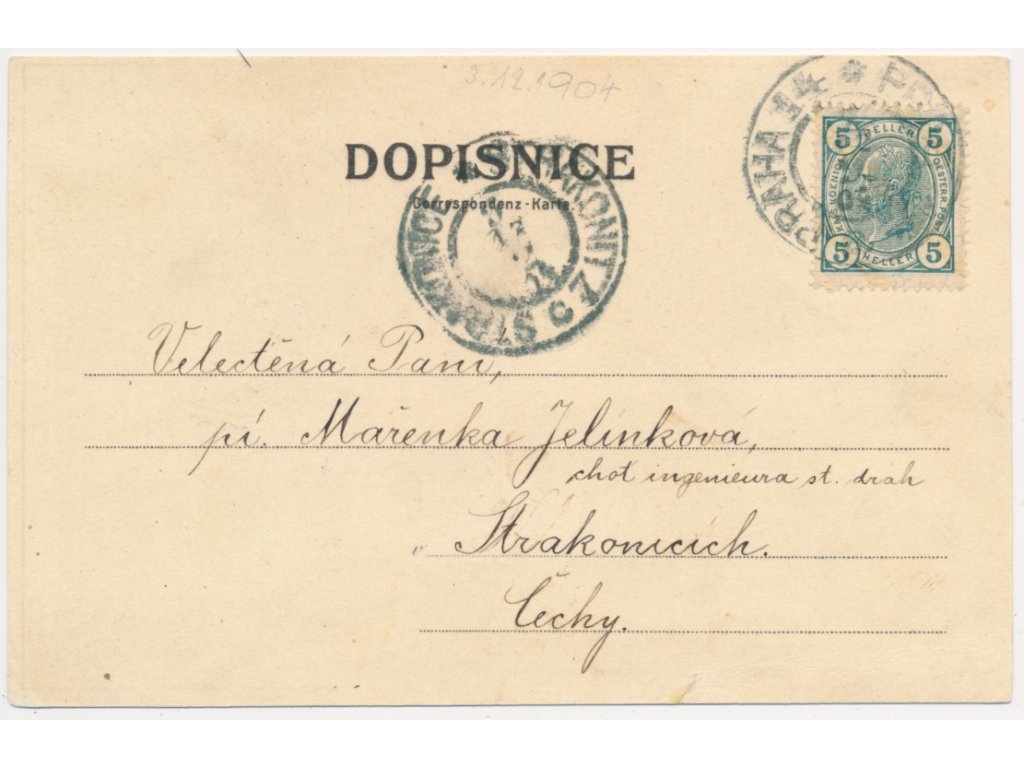 3.12.1904
PRAHA 14 * PR
5 HELLER 5
OESTERR. POST
5 HELLER 5
DOPISNICE
Correspondenz-Karte
STRAKONITZ
Velectěná Paní,
pí. Mařenka Jelínková,
choť ingenieura st. drah
v Strakonicích.
Čechy.